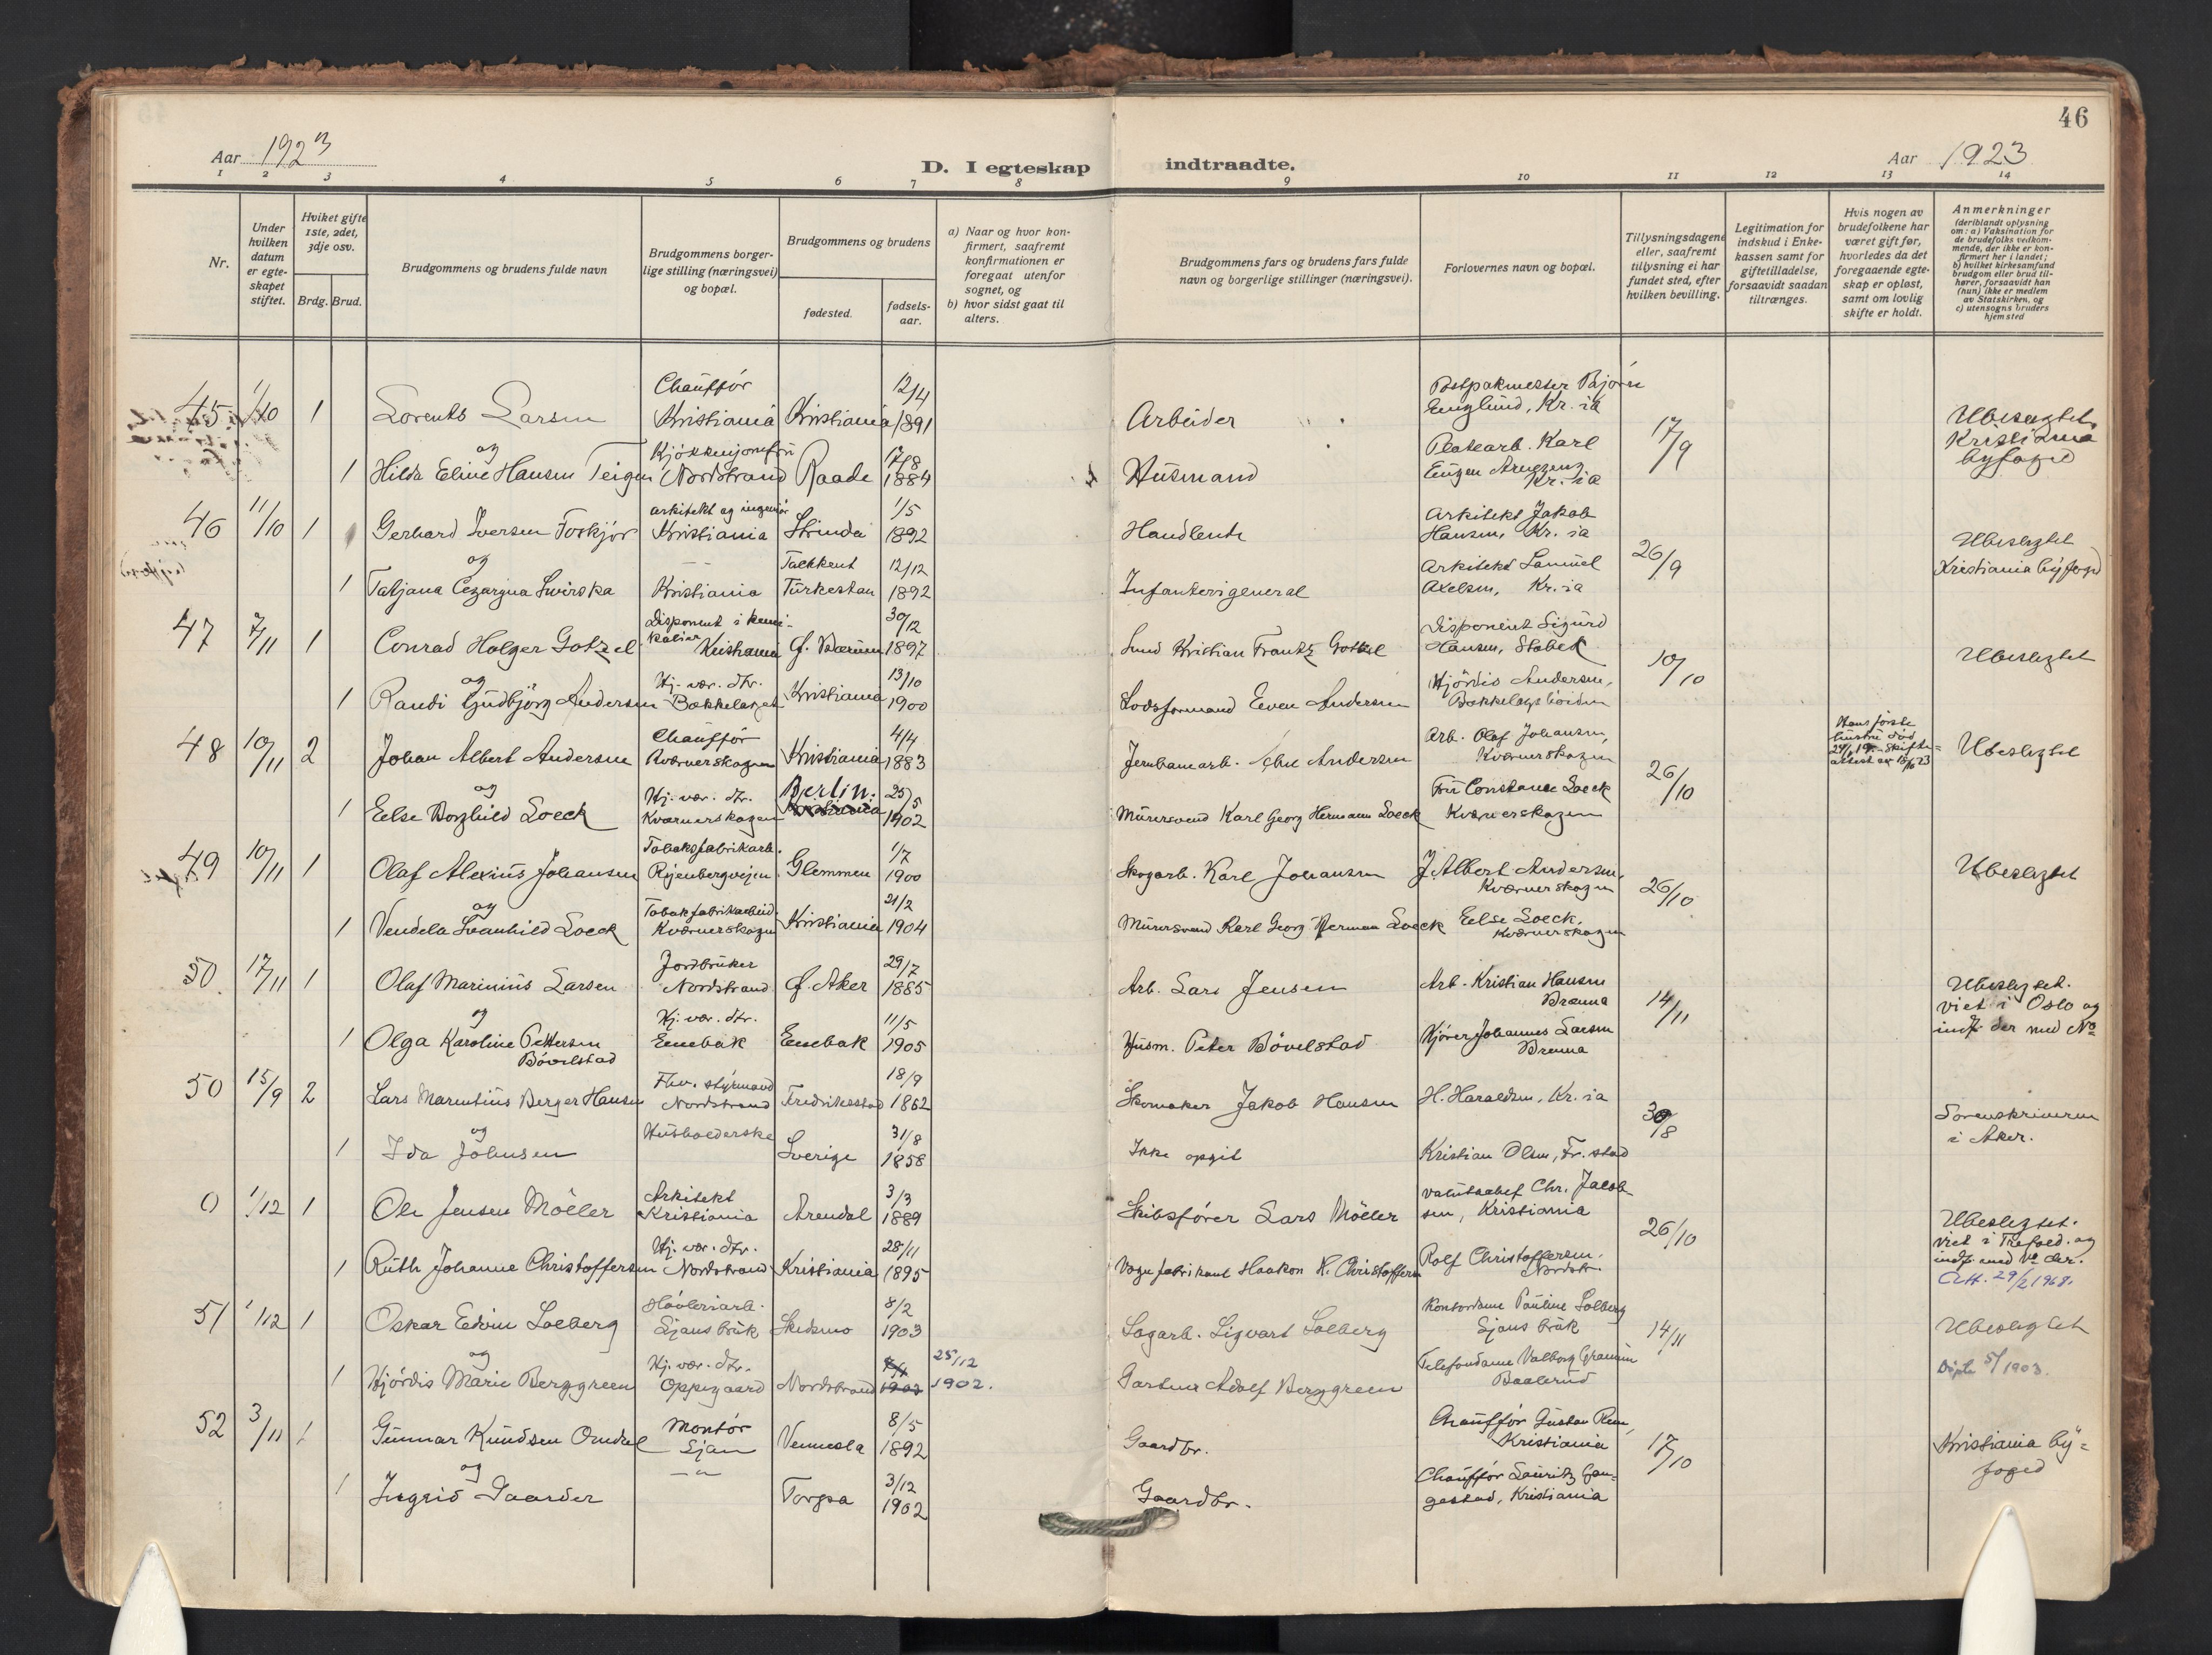 46
Aar 1923
D. I egteskap indtraadte.
Aar 1923
1 2 3 4 5 6 7 8 9 10 11 12 13 14
Nr.
Under hvilken datum er egte-skapet stiftet.
Hviket gifte 1ste, 2det, 3dje osv.
Brdg. Brud.
Brudgommens og brudens fulde navn
Brudgommens borger-lige stilling (næringsvei) og bopæl.
Brudgommens og brudens
fødested.
fødsels-aar.
a) Naar og hvor kon-firmert, saafremt konfirmationen er foregaat utenfor sognet, og
b) hvor sidst gaat til alters.
Brudgommens fars og brudens fars fulde navn og borgerlige stillinger (næringsvei).
Forlovernes navn og bopæl.
Tillysningsdagene eller, saafremt tillysning ei har fundet sted, efter hvilken bevilling.
Legitimation for indskud i Enke-kassen samt for giftetilladelse, forsaavidt saadan tiltrænges.
Hvis nogen av brudefolkene har været gift før, hvorledes da det foregaaende egte-skap er opløst, samt om lovlig skifte er holdt.
Anmerkninger (deriblandt oplysning om: a) Vaksination for de brudefolks vedkom-mende, der ikke er kon-firmert her i landet; b) hvilket kirkesamfund brudgom eller brud til-hører, forsaavidt han (hun) ikke er medlem av Statskirken, og c) utensogns bruders hjemsted
45 1/10 1 Lorents Larsen Chauffør Kristiania Kristiania 12/4 1891 Arbeider Postpakmester Bjørn Englund, Kr.ia 17/9 Ubeslegtet. Kristiania byfoged
og
1 Hilda Eline Hansen Teigen Kjøkkenjomfru Nordstrand Raade 17/8 1884 Husmand Platearb. Karl Eugen Kr.ia
46 11/10 1 Gerhard Iversen Foskjør arkitekt og ingeniør Kristiania Strinda 1/5 1892 Handlende Arkitekt Jakob Hansen, Kr.ia 26/9 Ubeslegtet Kristiania byfoged
og
1 Tatjana Cezaryna Swirska Kristiania Tackkent Turkestan 12/12 1892 Infanterigeneral Arkitekt Samuel Axelsen, Kr.ia
47 7/11 1 Conrad Holger Gotzel Disponent i kemi-kalier Kristiania Ø. Bærum 30/12 1897 Kristian Frantz Gotzel Disponent Sigurd Hansen, Stabek 10/10 Ubeslegtet
og
1 Randi Gudbjörg Andersen Hj. vær. dtr. Bækkelaget Kristiania 13/10 1900 Lodsformand Even Andersen Hjördis Andersen, Bækkelagshöiden
48 10/11 2 Johan Albert Andersen Chauffør Kværnerskogen Kristiania 4/4 1883 Jernbanearb. Andersen Arb. Olaf Johansen, Kværnerskogen 26/10 Hans første hustru död skifte-attest av 15/10 23 Ubeslegtet
og
1 Else Borghild Loeck Hj. vær. dtr. Kværnerskogen Berlin. Kristiania 25/5 1902 Murersvend Karl Georg Hermann Loeck Fru Constance Loeck Kværnerskogen
49 10/11 1 Olaf Alexius Johansen Tobaksfabrikarb. Ryenbergveien Glemmen 1/7 1900 Skogarb. Karl Johansen J. Albert Andersen, Kværnerskogen 26/10 Ubeslegtet
og
1 Vendela Svanhild Loeck Tobaksfabrikarbeid. Kværnerskogen Kristiania 21/2 1904 Murersvend Karl Georg Herman Loeck Else Loeck, Kværnerskogen
50 17/11 1 Olaf Marinius Larsen Jordbruker Nordstrand Ø. Aker 29/7 1885 Arb. Lars Jensen Arb. Kristian Hansen Brenna 14/11 Ubeslegtet. viet i Oslo og indf. der med No
og
1 Olga Karoline Pettersen Bövelstad Hj. vær. dtr. Enebak Enebak 11/5 1905 Husm. Peter Bövelstad Kjörer Johannes Larsen Brenna
50 15/9 2 Lars Marentius Berger Hansen Fhv. styrmand Nordstrand Fredrikstad 18/9 1862 Skomaker Jakob Hansen H. Haraldsen, Kr.ia 30/8 Sorenskriveren i Aker.
og
1 Ida Johnsen Husholderske Sverige 31/8 1858 Ikke opgit Kristian Olsen, Fr.stad
0 1/12 1 Ole Jensen Möller Arkitekt Kristiania Arendal 3/3 1889 Skibsförer Lars Möller Valutachef Chr. Jacobsen, Kristiania 26/10 Ubeslegtet. viet i Trefold. og indf. med No der. Att. 29/2 1968.
1 Ruth Johanne Christoffersen Hj. vær. dtr. Nordstrand Kristiania 28/11 1895 Vognfabrikant Haakon K. Christoffersen Rolf Christoffersen, Nordstr.
51 1/12 1 Oskar Edvin Solberg Høvleriarb. Ljans bruk Skedsmo 8/2 1903 Sagarb. Sigvart Solberg Kontordame Pauline Solberg Ljans bruk 14/11 Ubeslegtet
og
1 Hjördis Marie Berggreen Hj. vær. dtr. Oppegaard Nordstrand 1903 25/12 1902. Gartner Adolf Berggreen Telefondame Valborg Baalerud Døpte 5/ 1903.
52 3/11 1 Gunnar Knudsen Omdal Montör Ljan Vennesla 8/5 1892 Gaardbr. Chauffør Gustav Kristiania 17/10 Kristiania by-foged
og
1 Ingrid Gaarder — " — Torpa 3/12 1902 Gaardbr. Chauffør Lauritz Gan-gestad, Kristiania